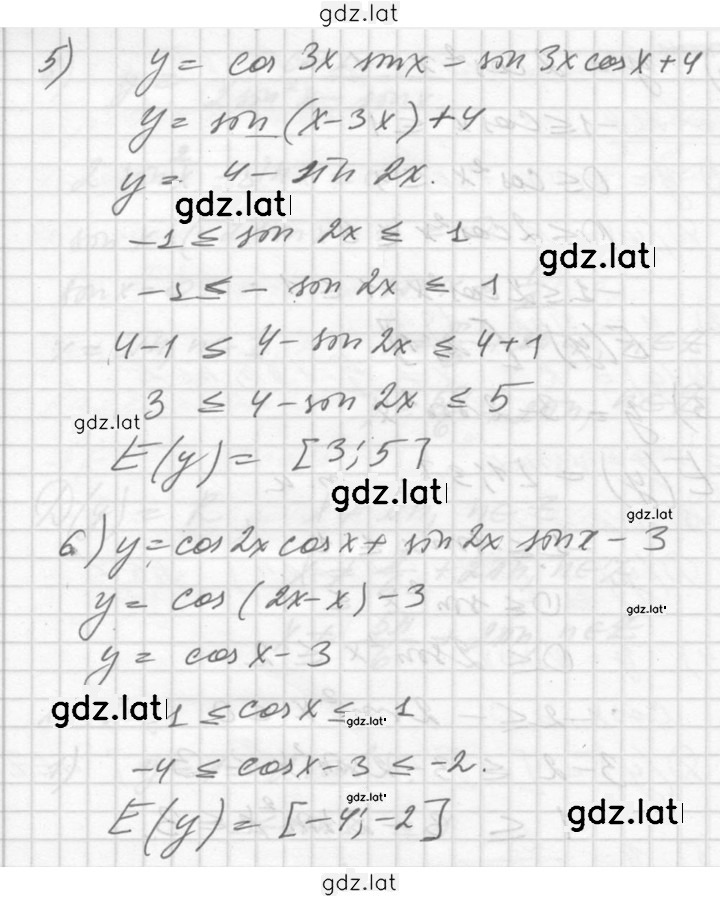 gdz.lat
5) y = cos 3x sinx - sin 3x cosx + 4
y = sin (x - 3x) + 4
y = 4 - sin 2x.
gdz.lat
-1 ≤ sin 2x ≤ 1
gdz.lat
-1 ≤ - sin 2x ≤ 1
4-1 ≤ 4 - sin 2x ≤ 4+1
3 ≤ 4 - sin 2x ≤ 5
gdz.lat
E(y) = [3;5]
gdz.lat
gdz.lat
6) y = cos2x cosx + sin2x sinx - 3
y = cos (2x - x) - 3
gdz.lat
y = cosx - 3
gdz.lat 1 ≤ cosx ≤ 1
gdz.lat
-4 ≤ cosx - 3 ≤ -2.
gdz.lat
E(y) = [-4; -2]
gdz.lat
gdz.lat